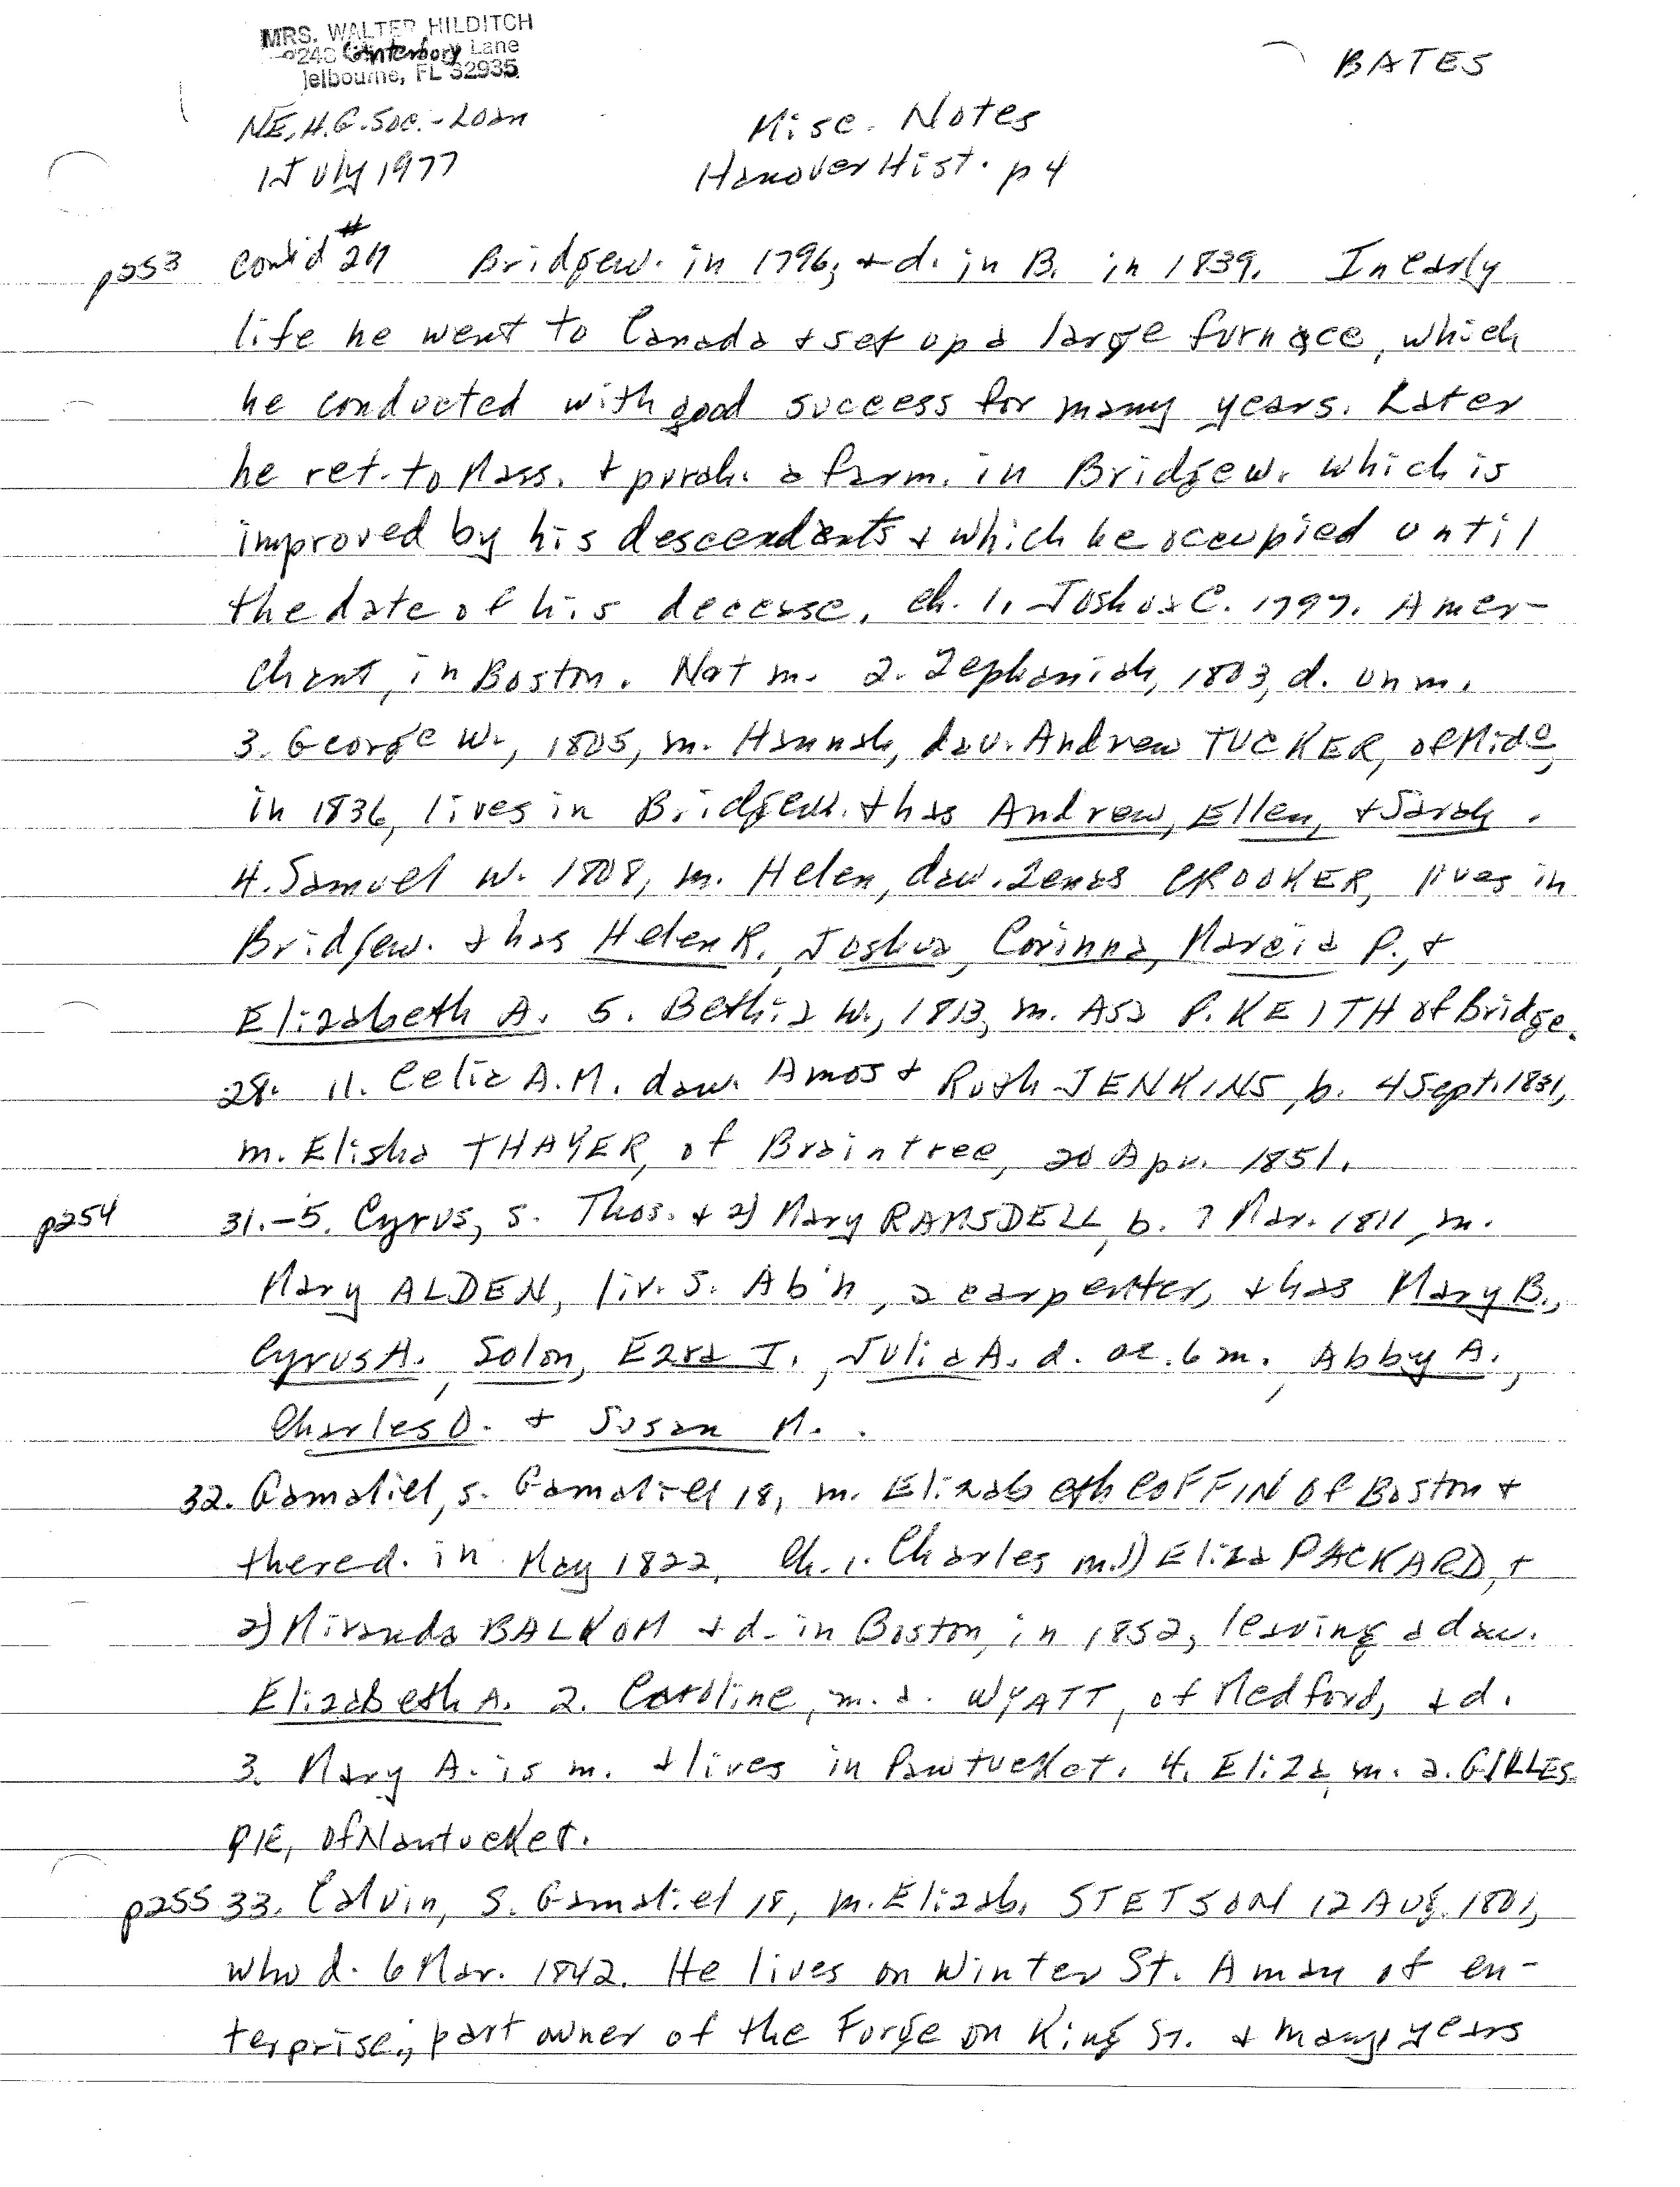 MRS. WALTER HILDITCH
2243 Canterbury Lane
Melbourne, FL 32935
BATES
NE, H.G. Soc. - Loan
1 July 1977
Misc. Notes
Hanover Hist. p 4
p253 cont'd # Bridgew. in 1796; + d. in B. in 1839. In early
life he went to Canada + set up a large furnace, which
he conducted with good success for many years. Later
he ret. to Mass. + purch. a farm. in Bridgew. which is
improved by his descendants + which he occupied until
the date of his decease. ch. 1. Joshua C. 1797. A mer-
chant, in Boston. Not m. 2. Zephaniah, 1803, d. unm.
3. George W., 1805, m. Hannah, dau. Andrew TUCKER, of Mido,
in 1836, lives in Bridgew. + has Andrew, Ellen, + Sarah.
4. Samuel W. 1808, m. Helen, dau. Zenas CROOKER, lives in
Bridgew. + has Helen R., Joshua, Corinna, Marcia P., +
Elizabeth A. 5. Bethia W., 1813, m. Asa P. KEITH of Bridge.
28. 11. Celia A.M. dau. Amos + Ruth JENKINS, b. 4 Sept. 1831,
m. Elisha THAYER, of Braintree, 20 Apr. 1851.
p254 31.-5. Cyrus, s. Thos. + 2) Mary RAMSDELL, b. 7 Mar. 1811, m.
Mary ALDEN, liv. S. Ab'n, a carpenter, + has Mary B.,
Cyrus A., Solon, Ezra T., Julia A. d. ae. 6 m., Abby A.,
Charles D. + Susan M..
32. Gamaliel, s. Gamaliel 18, m. Elizabeth COFFIN of Boston +
there d. in May 1822. Ch. 1. Charles m. 1) Eliza PACKARD, +
2) Miranda BALKOM + d. in Boston, in 1852, leaving a dau.
Elizabeth A. 2. Caroline, m. a. WYATT, of Medford, + d.
3. Mary A. is m. + lives in Pawtucket. 4. Eliza, m. a. GILLES-
PIE, of Nantucket.
p255 33. Calvin, S. Gamaliel 18, m. Elizab. STETSON 12 Aug. 1801,
who d. 6 Mar. 1842. He lives on Winter St. A man of en-
terprise, part owner of the Forge on King St. + many years